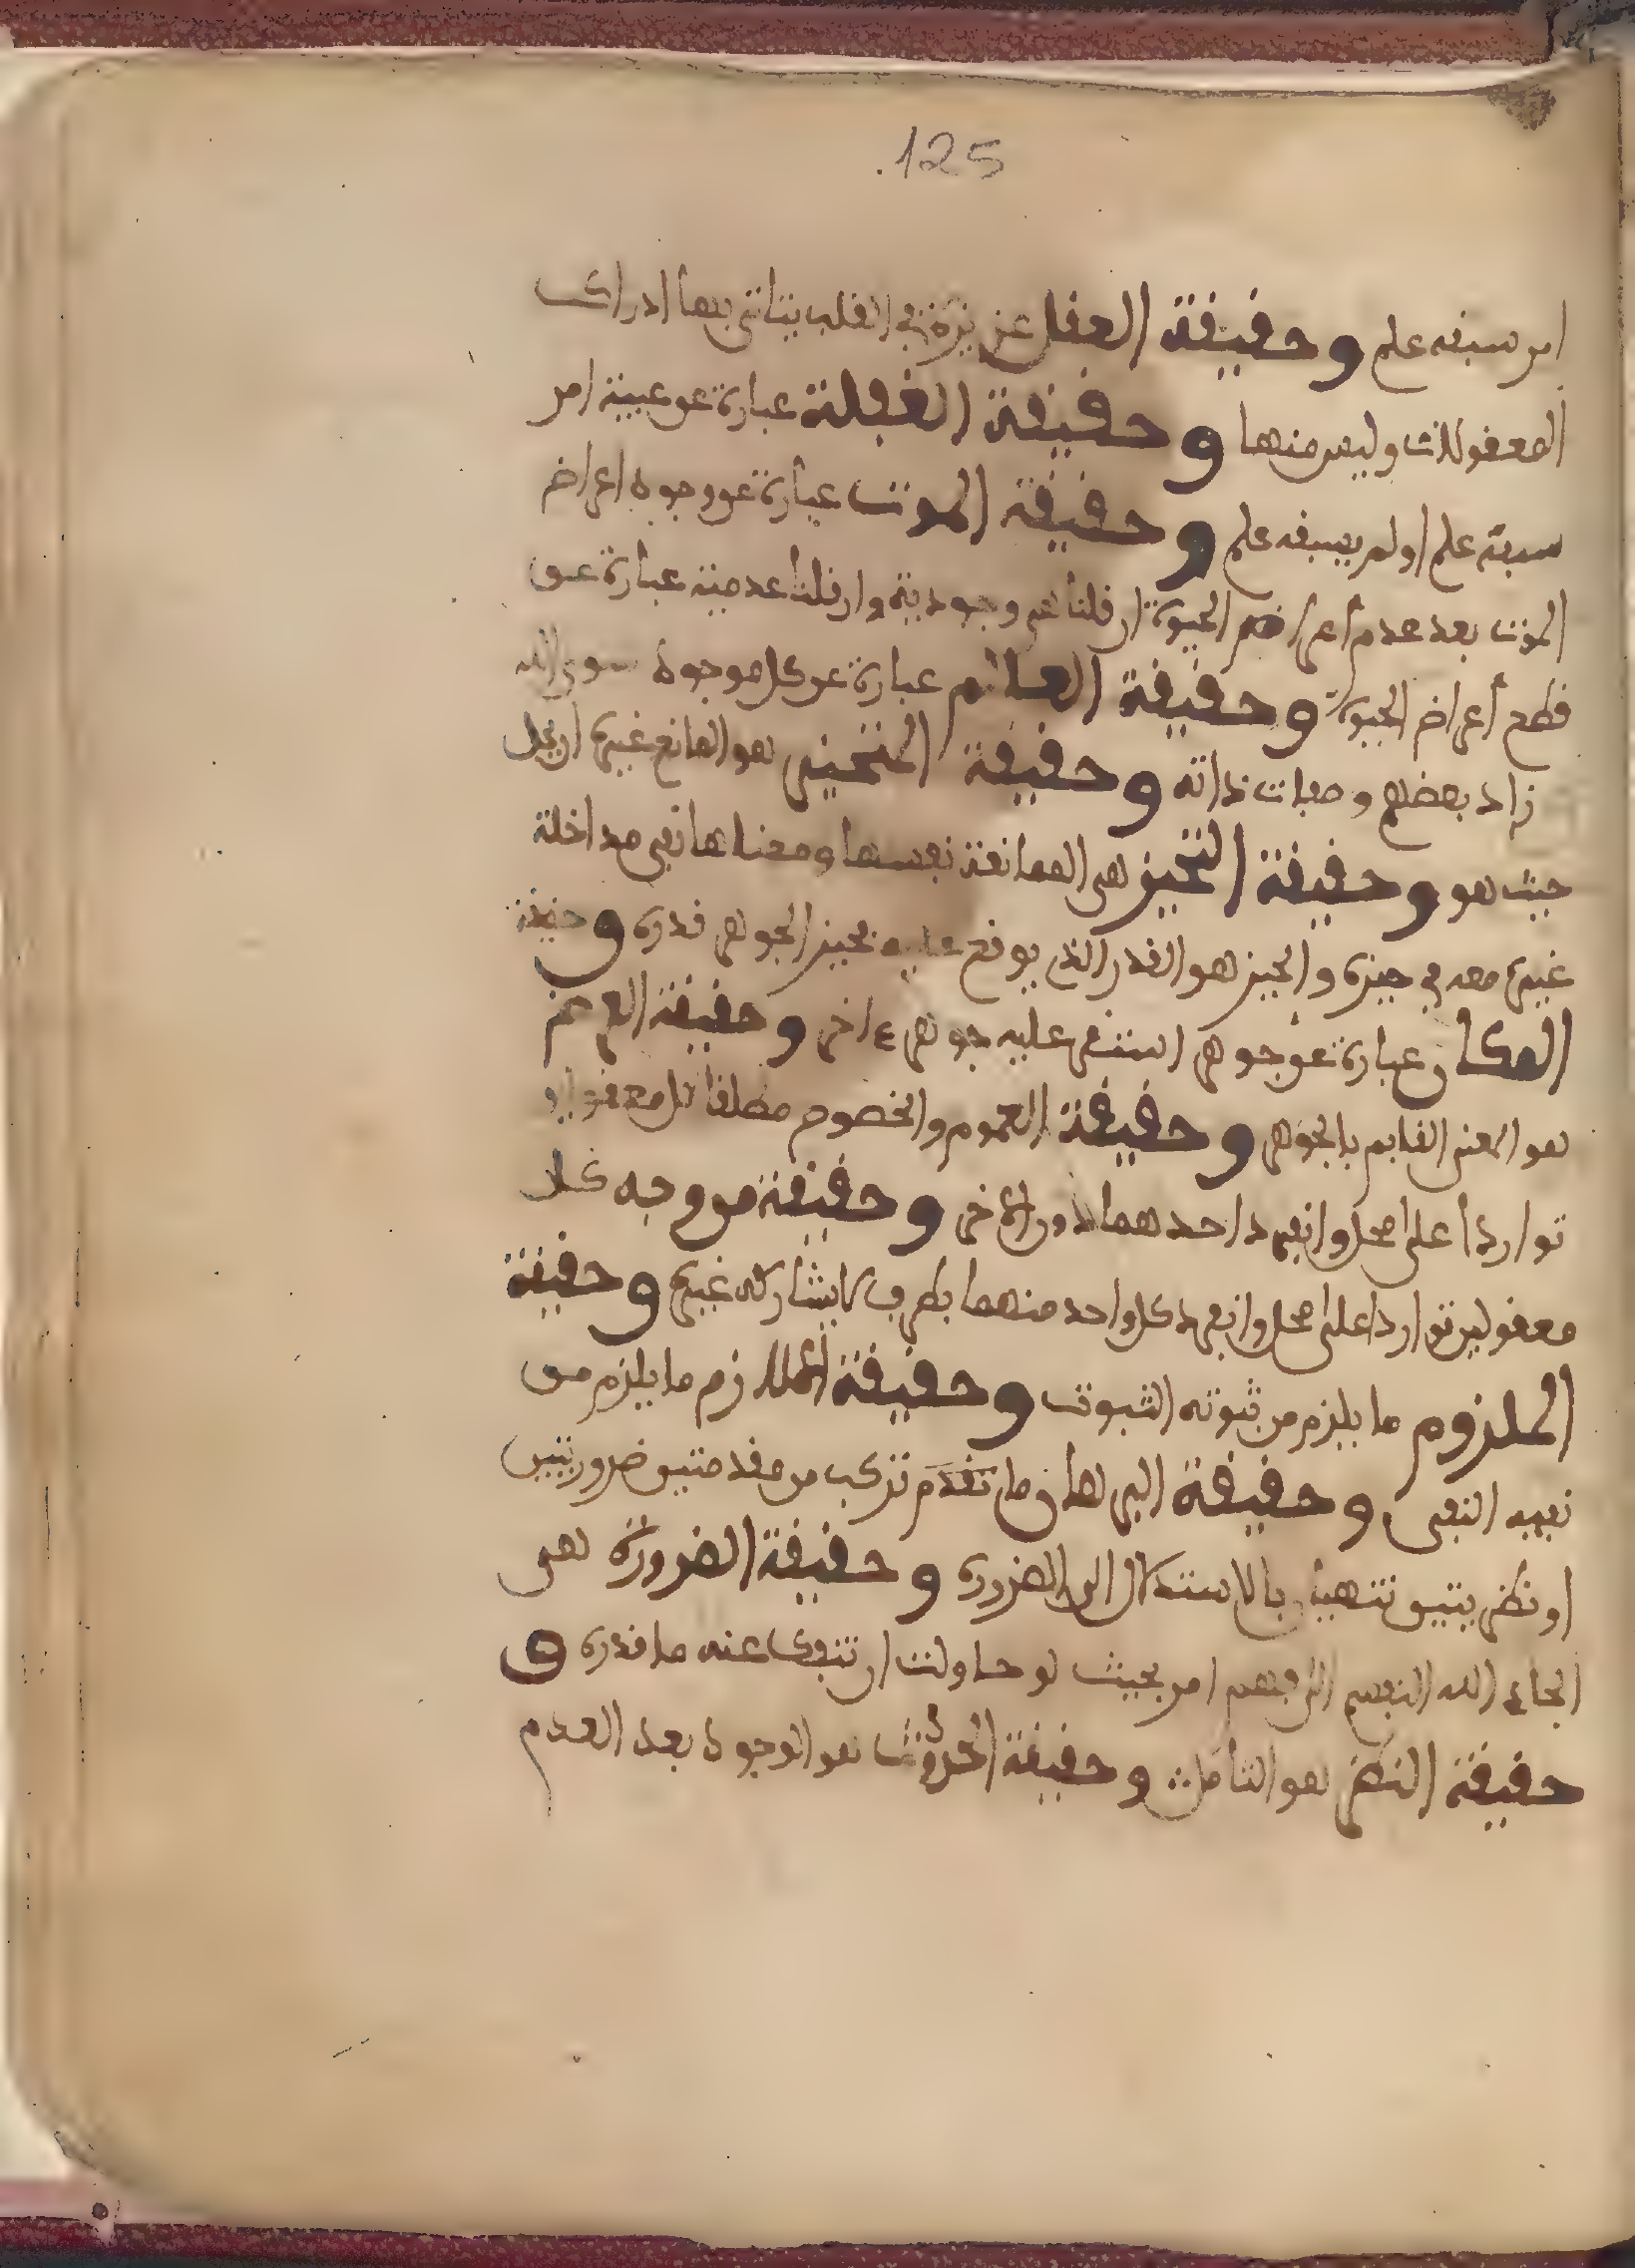 .125
امر سبقه علم وحقيقة العقل غريزة في القلب يتاتى بها ادراك
المعقولات وليس منها وحقيقة الغفلة عبارة عن غيبة امر
سبقه علم اولم يسبقه علم وحقيقة الموت عبارة عن وجود اعراض
الموت بعد عدم أعراض الحيوة ان قلنا هي وجودية وان قلنا عدمية عبارة عن
قطع أعراض الحيوة وحقيقة العالم عبارة عن كل موجود سوى الله
زاد بعضهم وصفات ذاته وحقيقة المتحيز هو المانع غيره ان يحل
حيث هو وحقيقة التحيز هي الممانعة نفسها ومعناها نفي مداخلة
غيره معه في حيزه والحيز هو القدر الذي يوقع عليه تحيز الجوهر قدره وحقيقة
المكان عبارة عن جوهر استقر عليه جوهر ءاخر وحقيقة العرض
هو المعنى القايم بالجوهر وحقيقة العموم والخصوص مطلقا كل معقولين
تواردا على محل وانفرد احدهما دون الاخر وحقيقة من وجه كل
معقولين تواردا على محل وانفرد كل واحد منهما بطرف لا يشاركه غيره وحقيقة
الملزوم ما يلزم من ثبوته الثبوت وحقيقة اللازم ما يلزم من
نفيه النفي وحقيقة البرهان ما تقدم تركب من مقدمتين ضروريتين
او نظريتين تنتهي بالاستدلال الى الضروره وحقيقة الضرورة هو
الجاء الله النفس الى فهم امر بحيث لو حاولت ان تنفك عنه ما قدره و
حقيقة النظر هو التامل وحقيقة الحدوث هو الوجود بعد العدم